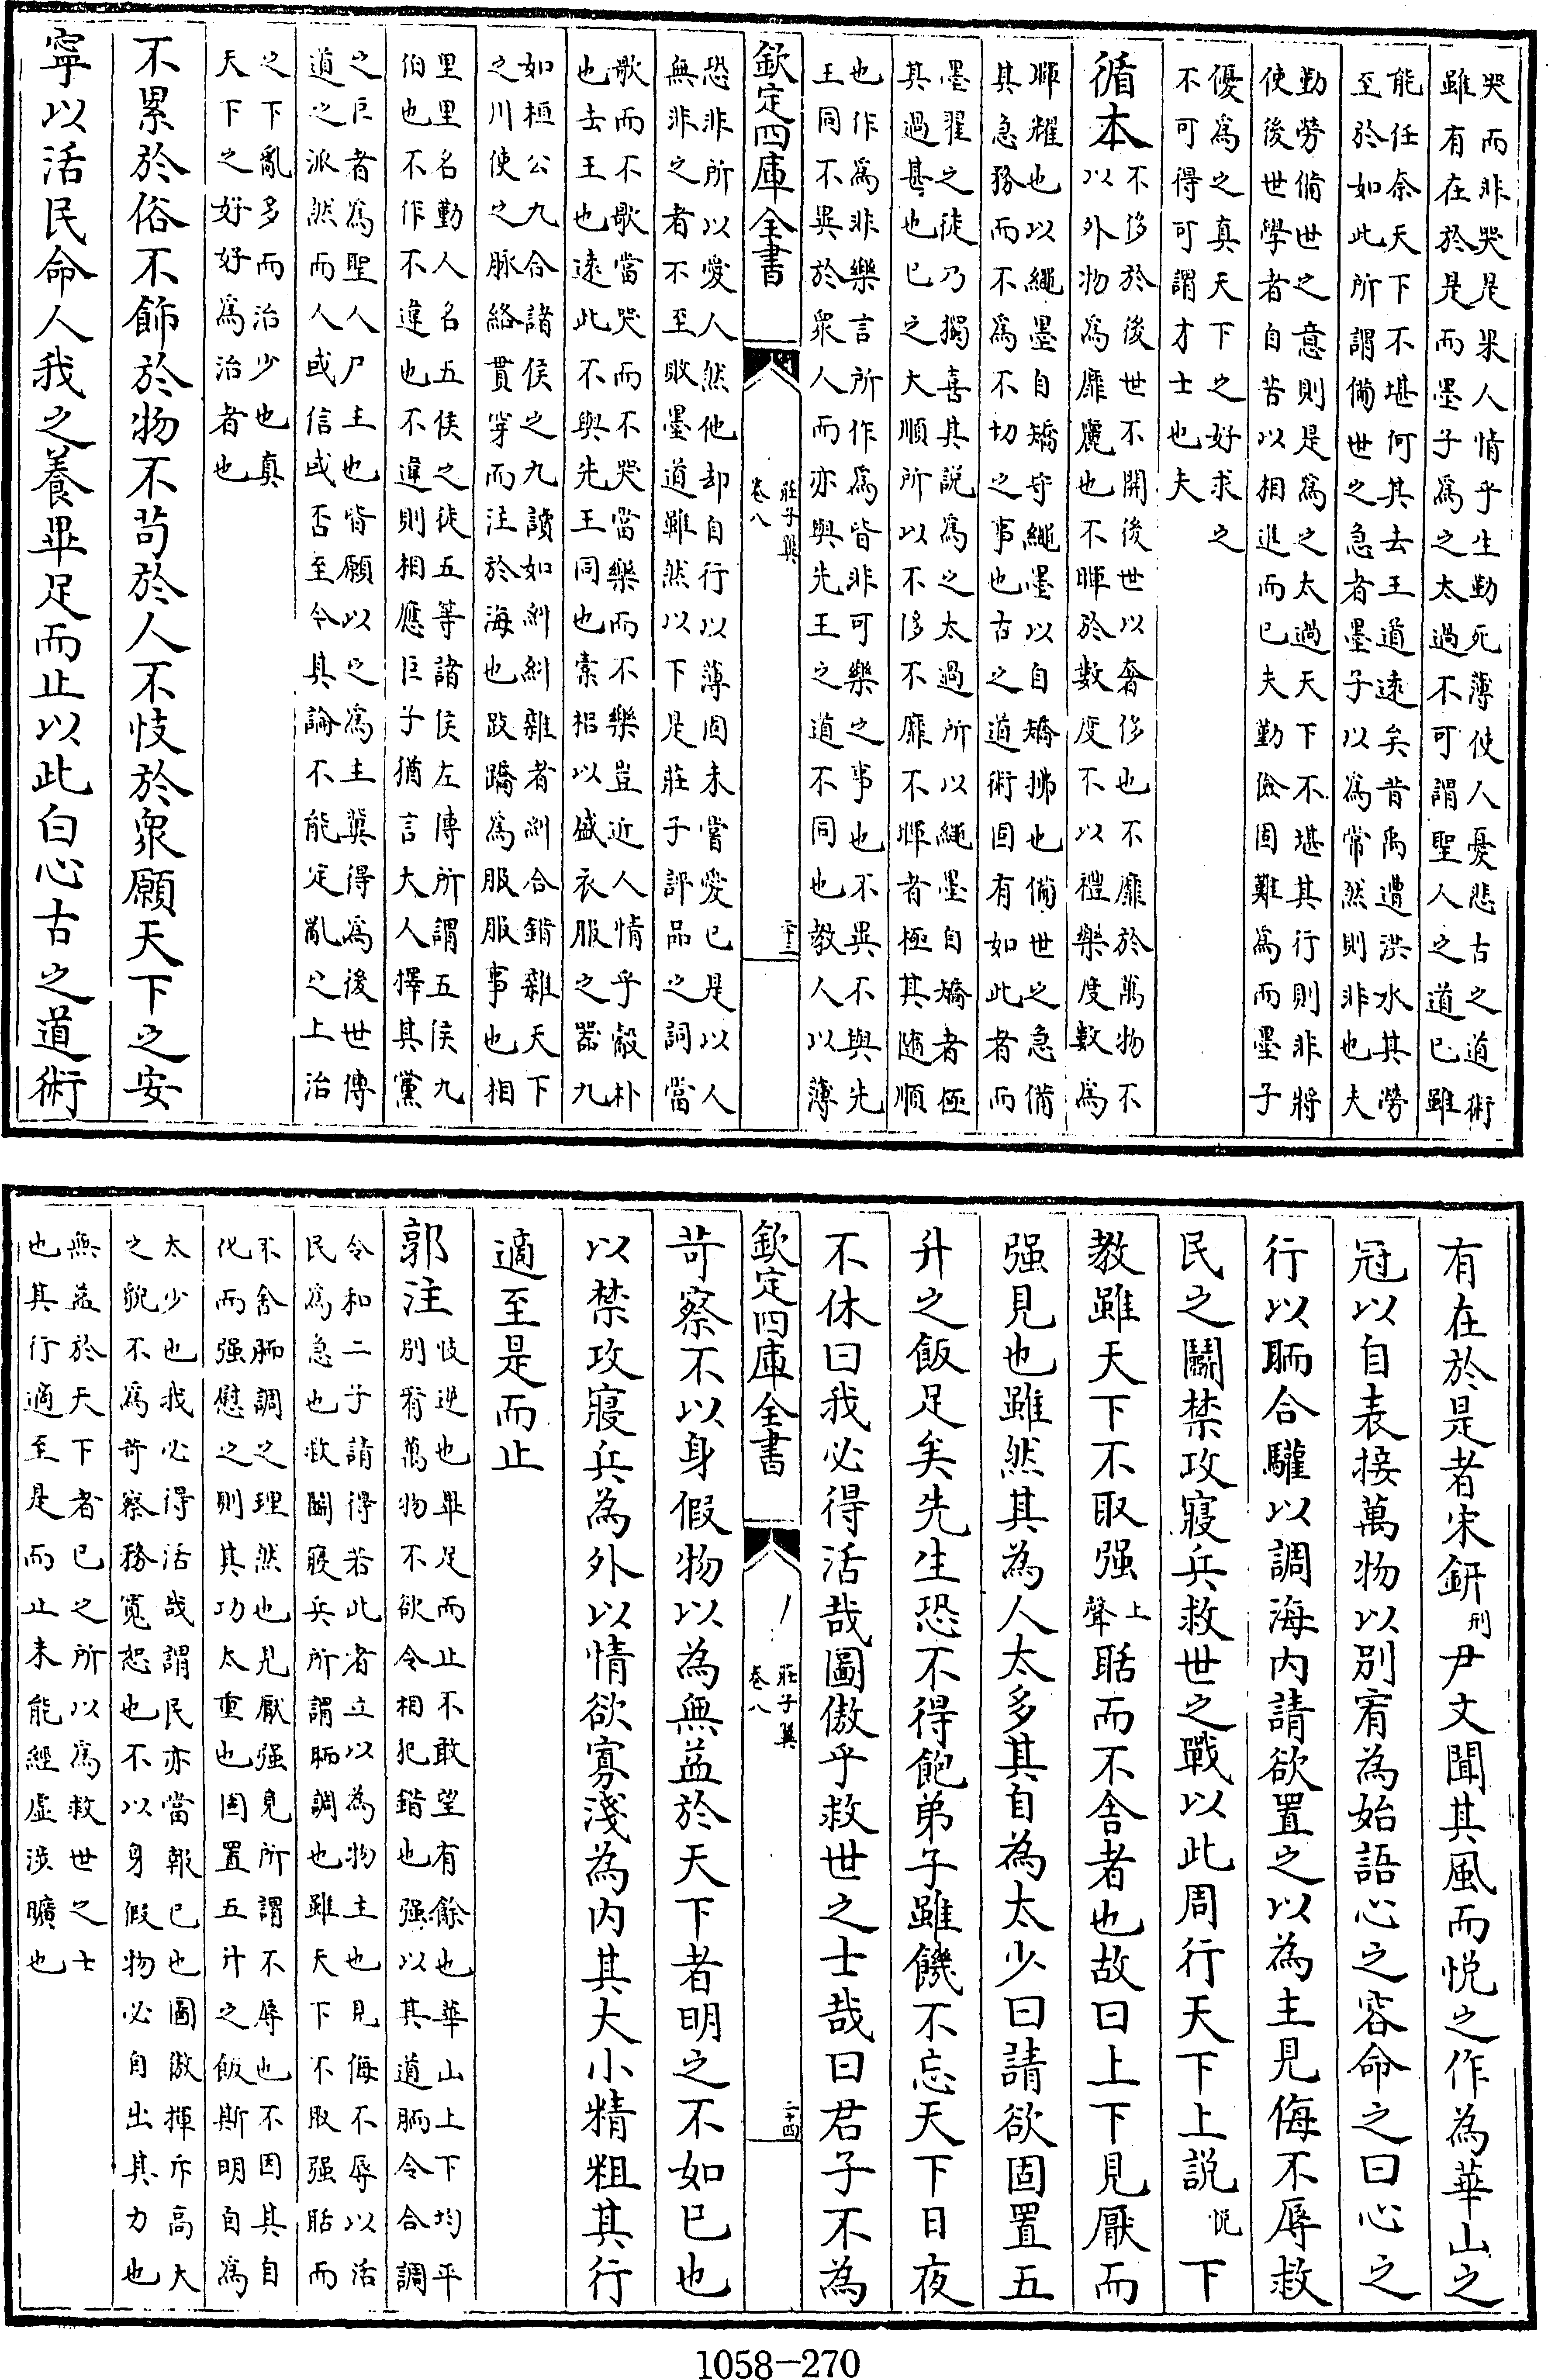 哭而非哭是果人情乎生勤死薄使人憂悲古之道術
雖有在於是而墨子爲之太過不可謂聖人之道已雖
能任奈天下不堪何其去王道遠矣昔禹遭洪水其勞
至於如此所謂備世之急者墨子以爲常然則非也夫
勤勞備世之意則是爲之太過天下不堪其行則非將
使後世學者自苦以相進而已夫勤儉固難爲而墨子
優爲之真天下之好求之
不可得可謂才士也夫
循本 不侈於後世不開後世以奢侈也不靡於萬物不
以外物爲靡麗也不暉於數度不以禮樂度數爲
暉耀也以繩墨自矯守繩墨以自矯拂也備世之急備
其急務而不爲不切之事也古之道術固有如此者而
墨翟之徒乃獨喜其說爲之太過所以繩墨自矯者極
其過甚也已之大順所以不侈不靡不暉者極其隨順
也作爲非樂言所作爲皆非可樂之事也不異不與先
王同不異於衆人而亦與先王之道不同也教人以薄
欽定四庫全書 莊子翼 卷八 二十三
恐非所以愛人然他却自行以薄固未嘗愛已是以人
無非之者不至敗墨道雖然以下是莊子評品之詞當
歌而不歌當哭而不哭當樂而不樂豈近人情乎觳朴
也去王也遠此不與先王同也素梠以盛衣服之器九
如桓公九合諸侯之九讀如糾糾雜者糾合錯雜天下
之川使之脉絡貫穿而注於海也跂蹻爲服服事也相
里里名勤人名五侯之徒五等諸侯左傳所謂五侯九
伯也不作不違也不違則相應巨子猶言大人擇其黨
之巨者爲聖人尸主也皆願以之爲主冀得爲後世傳
道之派然而人或信或否至今其論不能定亂之上治
之下亂多而治少也真
天下之好好爲治者也
不累於俗不飾於物不苟於人不忮於衆願天下之安
寧以活民命人我之養畢足而止以此白心古之道術
有在於是者宋鈃刑尹文聞其風而悅之作為華山之
冠以自表接萬物以別宥為始語心之容命之曰心之
行以聏合驩以調海內請欲置之以為主見侮不辱救
民之鬭禁攻寢兵救世之戰以此周行天下上說悦下
教雖天下不取强上聲聒而不舍者也故曰上下見厭而
强見也雖然其為人太多其自為太少曰請欲固置五
升之飯足矣先生恐不得飽弟子雖饑不忘天下日夜
不休曰我必得活哉圖傲乎救世之士哉曰君子不為
欽定四庫全書 莊子翼 卷八 二十四
苛察不以身假物以為無益於天下者明之不如已也
以禁攻寢兵為外以情欲寡淺為內其大小精粗其行
適至是而止
郭注 忮逆也畢足而止不敢望有餘也華山上下均平
別宥萬物不欲令相犯錯也强以其道聏令合調
令和二子請得若此者立以為物主也見侮不辱以活
民爲急也救鬭寢兵所謂聏調也雖天下不取强聒而
不舍聏調之理然也見厭强見所謂不辱也不因其自
化而强慰之則其功太重也固置五升之飯斯明自爲
太少也我必得活哉謂民亦當報已也圖傲揮斥高大
之貌不爲苛察務寬恕也不以身假物必自出其力也
無益於天下者已之所以爲救世之士
也其行適至是而止未能經虛涉曠也
1058—270